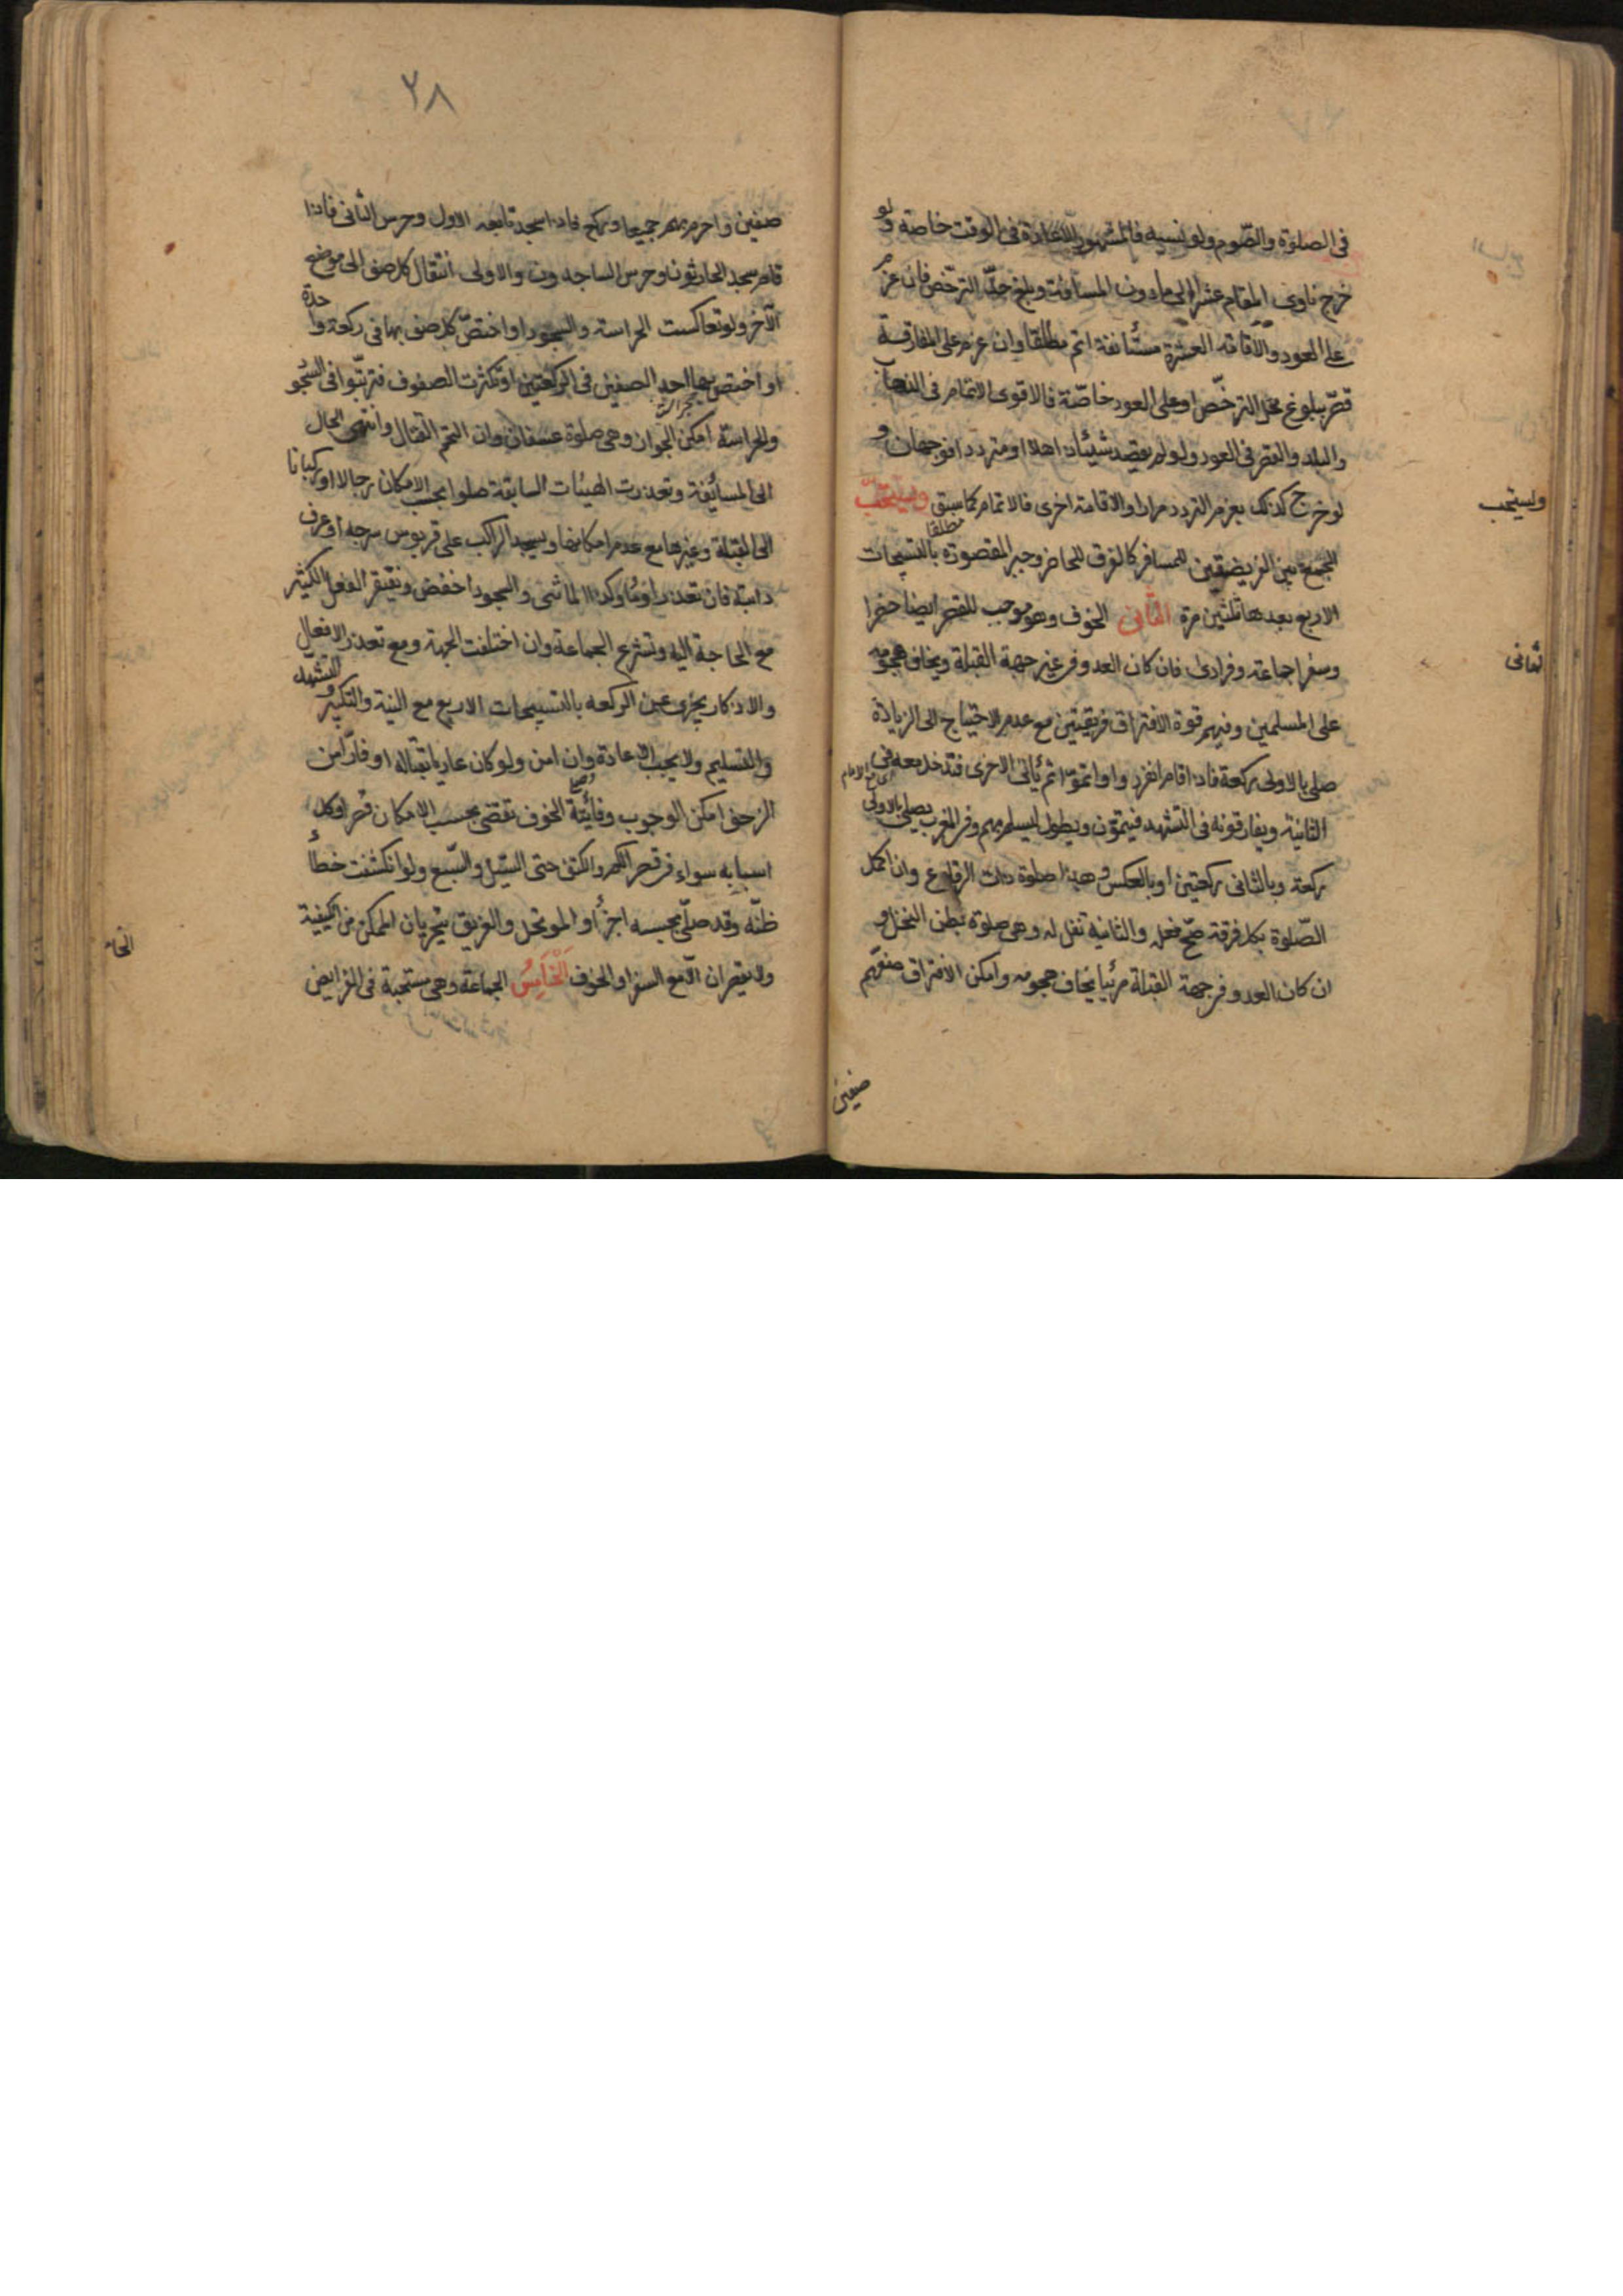 فى الصلوة والصوم ولو نسيه فالمشهور الاعادة فى الوقت خاصة ولو
خرج ناوى المقام عشرا الى مادون المسافة وبلغ حد الترخص فان عزم
على العود والاقامة العشرة مستأنفة اتم مطلقا وان عزم على المفارقة
قصر ببلوغ محل الترخص او على العود خاصة فالاقوى الاتمام فى الذهاب
والبلد والقصر فى العود ولو لم يقصد شيئا ذاهلا او مترددا فوجهان و
لو خرج كذلك بعزم التردد مرارا والاقامة اخرى فالاتمام كما سبق ويستحب
ويستحب
الجمع بين الفريضتين للمسافر كالفرق للحاضر وجبر المقصورة مطلقا بالتسبيحات
الاربع بعدها ثلثين مرة الثانى الخوف وهو موجب للقصر ايضا حضرا
وسفرا جماعة وفرادى فان كان العدو فى غير جهة القبلة ويخاف هجومه
ثانى
على المسلمين وفيهم قوة الافتراق فرقتين مع عدم الاحتياج الى الزيادة
صلى بالاولى ركعة فاذا قام انفردوا واتموا ثم تأتى الاخرى فتدخل معه فى
الثانية ويفارقونه فى التشهد فيتمون ويطول ليسلم بهم وفى المغرب يصلى بالاولى
ركعة وبالثانى ركعتين او بالعكس وهذه صلوة ذات الرقاع وان اكمل
الصلوة بكل فرقة صح فعله والثانية نفل له وهى صلوة بطن النخل و
ان كان العدو فى جهة القبلة مرئيا يخاف هجومه وامكن الافتراق صفهم
صفين
٢٨
صفين واحرم بهم جميعا وركع فاذا سجد تابعه الاول وحرس الثانى فاذا
قام سجد الحارثون وحرس الساجدون والاولى انتقال كل صف الى موضع
الآخر ولو تعاكست الحراسة والسجود او اختص كل صف بها فى ركعة واحدة
او اختص بها احد الصفين فى الركعتين او تكثرت الصفوف فترتبوا فى السجو
والحراسة امكن الجواز وهى صلوة عسفان وان التحم القتال وانتهى الحال
الى المسائفة وتعذرت الهيئات السابقة صلوا بحسب الامكان رجالا او ركبانا
الى القبلة وغيرها مع عدم امكانها ويسجد الراكب على قربوس سرجه او عرف
دابته فان تعذر اومأ وكذا الماشى والسجود اخفض ويغتفر الفعل الكثير
مع الحاجة اليه وتشرع الجماعة وان اختلفت الجهة ومع تعذر الافعال
والاذكار يجزى عن الركعه بالتسبيحات الاربع مع النية والتكبير والتشهد
والتسليم ولا يجب الاعادة وان امن ولو كان عاديا بقتاله او فارا من
الزحف امكن الوجوب وفائتة الخوف تقضى بحسب الامكان قصرا وكل
اسبابه سواء فى قصر الكم والكيف حتى السيل والسبع ولو انكشفت خطأ
ظنه وقد صلى بحسبه اجزأ والموتحل والغريق يتحريان الممكن من الكيفية
ولا يقصران الا مع السفر او الخوف الخامس الجماعة وهى مستحبة فى الفرايض
الخا